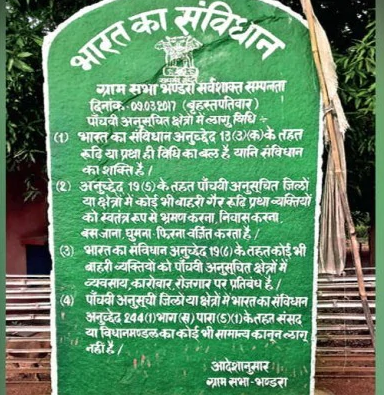 भारत का संविधान
ग्राम सभा भण्डरा सर्वशक्ति सम्पन्नता
दिनांक- 09.03.2017 (बृहस्पतिवार)
पाँचवी अनुसूचित क्षेत्रों में लागू विधि ÷
(1) भारत का संविधान अनुच्छेद 13(3)(क) के तहत
रूढ़ि या प्रथा ही विधि का बल है, यानि संविधान
का शक्ति है /
(2) अनुच्छेद 19(5) के तहत पाँचवी अनुसूचित जिलों
या क्षेत्रों में कोई भी बाहरी गैर रूढ़ि प्रथा व्यक्तियों
को स्वतंत्र रूप से भ्रमण करना, निवास करना,
बस जाना, घुमना- फिरना वर्जित करता है /
(3) भारत का संविधान अनुच्छेद 19(6) के तहत कोई भी
बाहरी व्यक्तियों को पाँचवी अनुसूचित क्षेत्रों में
व्यवसाय, कारोबार, रोजगार पर प्रतिबंध है /
(4) पाँचवी अनुसूची जिलो या क्षेत्रों में भारत का संविधान
अनुच्छेद 244(1) भाग (स) पारा (5)(1) के तहत संसद
या विधानमण्डल का कोई भी सामान्य कानून लागू
नहीं है /
आदेशानुसार
ग्राम सभा- भण्डरा